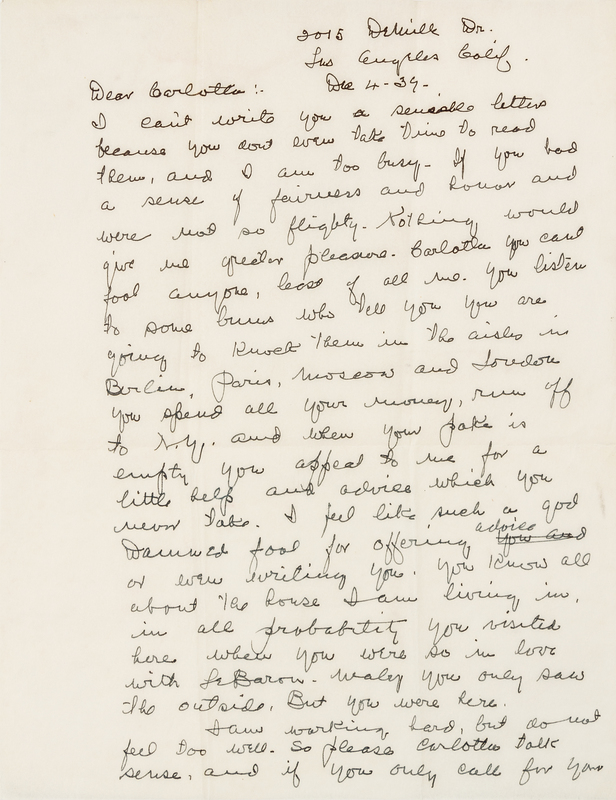 2015 DeMille Dr.
Los Angeles Calif.
Dear Carlotta:- Dec 4-39-
I can't write you a sensable letters
because you dont even take time to read
them, and I am too busy- If you had
a sense of fairness and honor and
were not so flighty- Nothing would
give me greater pleasure. Carlotta you cant
fool anyone, lease of all me. You listen
to some bums who tell you you are
going to knock them in the aisles in
Berlin, Paris, Moscow and London
you spend all your money, run off
to N.Y. and when your poke is
empty you appeal to me for a
little help and advice which you
never take. I feel like such a god
dammed fool for offering advice you and
or even writing you. You know all
about the house I am living in,
in all probability you visited
here when you were so in love
with LeBaron- Maby you only saw
the outside. But you were here.
I am working hard, but do not
feel too well- So please Carlotta talk
sense, and if you only call for your